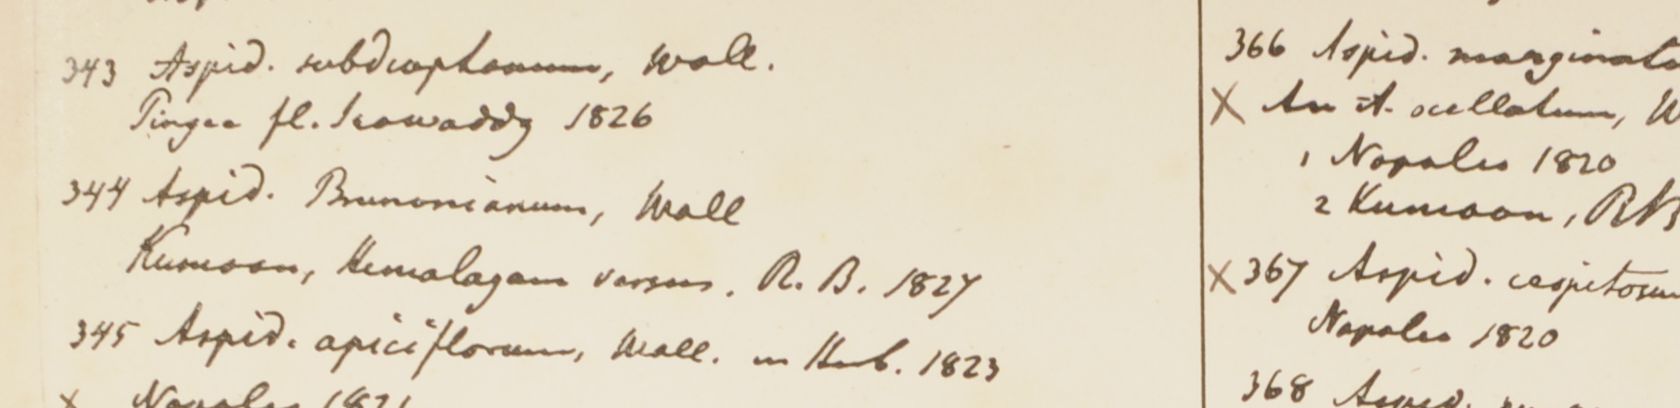 343 Aspid. subdiaphanum, Wall.
fl. Irawaddy 1826
344 Aspid. Brunonianum, Wall
Kumaon, Himalayam versus. R. B. 1827
345 Aspid. apiciflorum, Wall. in Herb. 1823
x Napalia 1821
366 Aspid. marginat
X An A. ocellatum, W
1 Napalia 1820
2 Kumaon, RB
X 367 Aspid. cespitosum
Napalia 1820
368 Aspid.